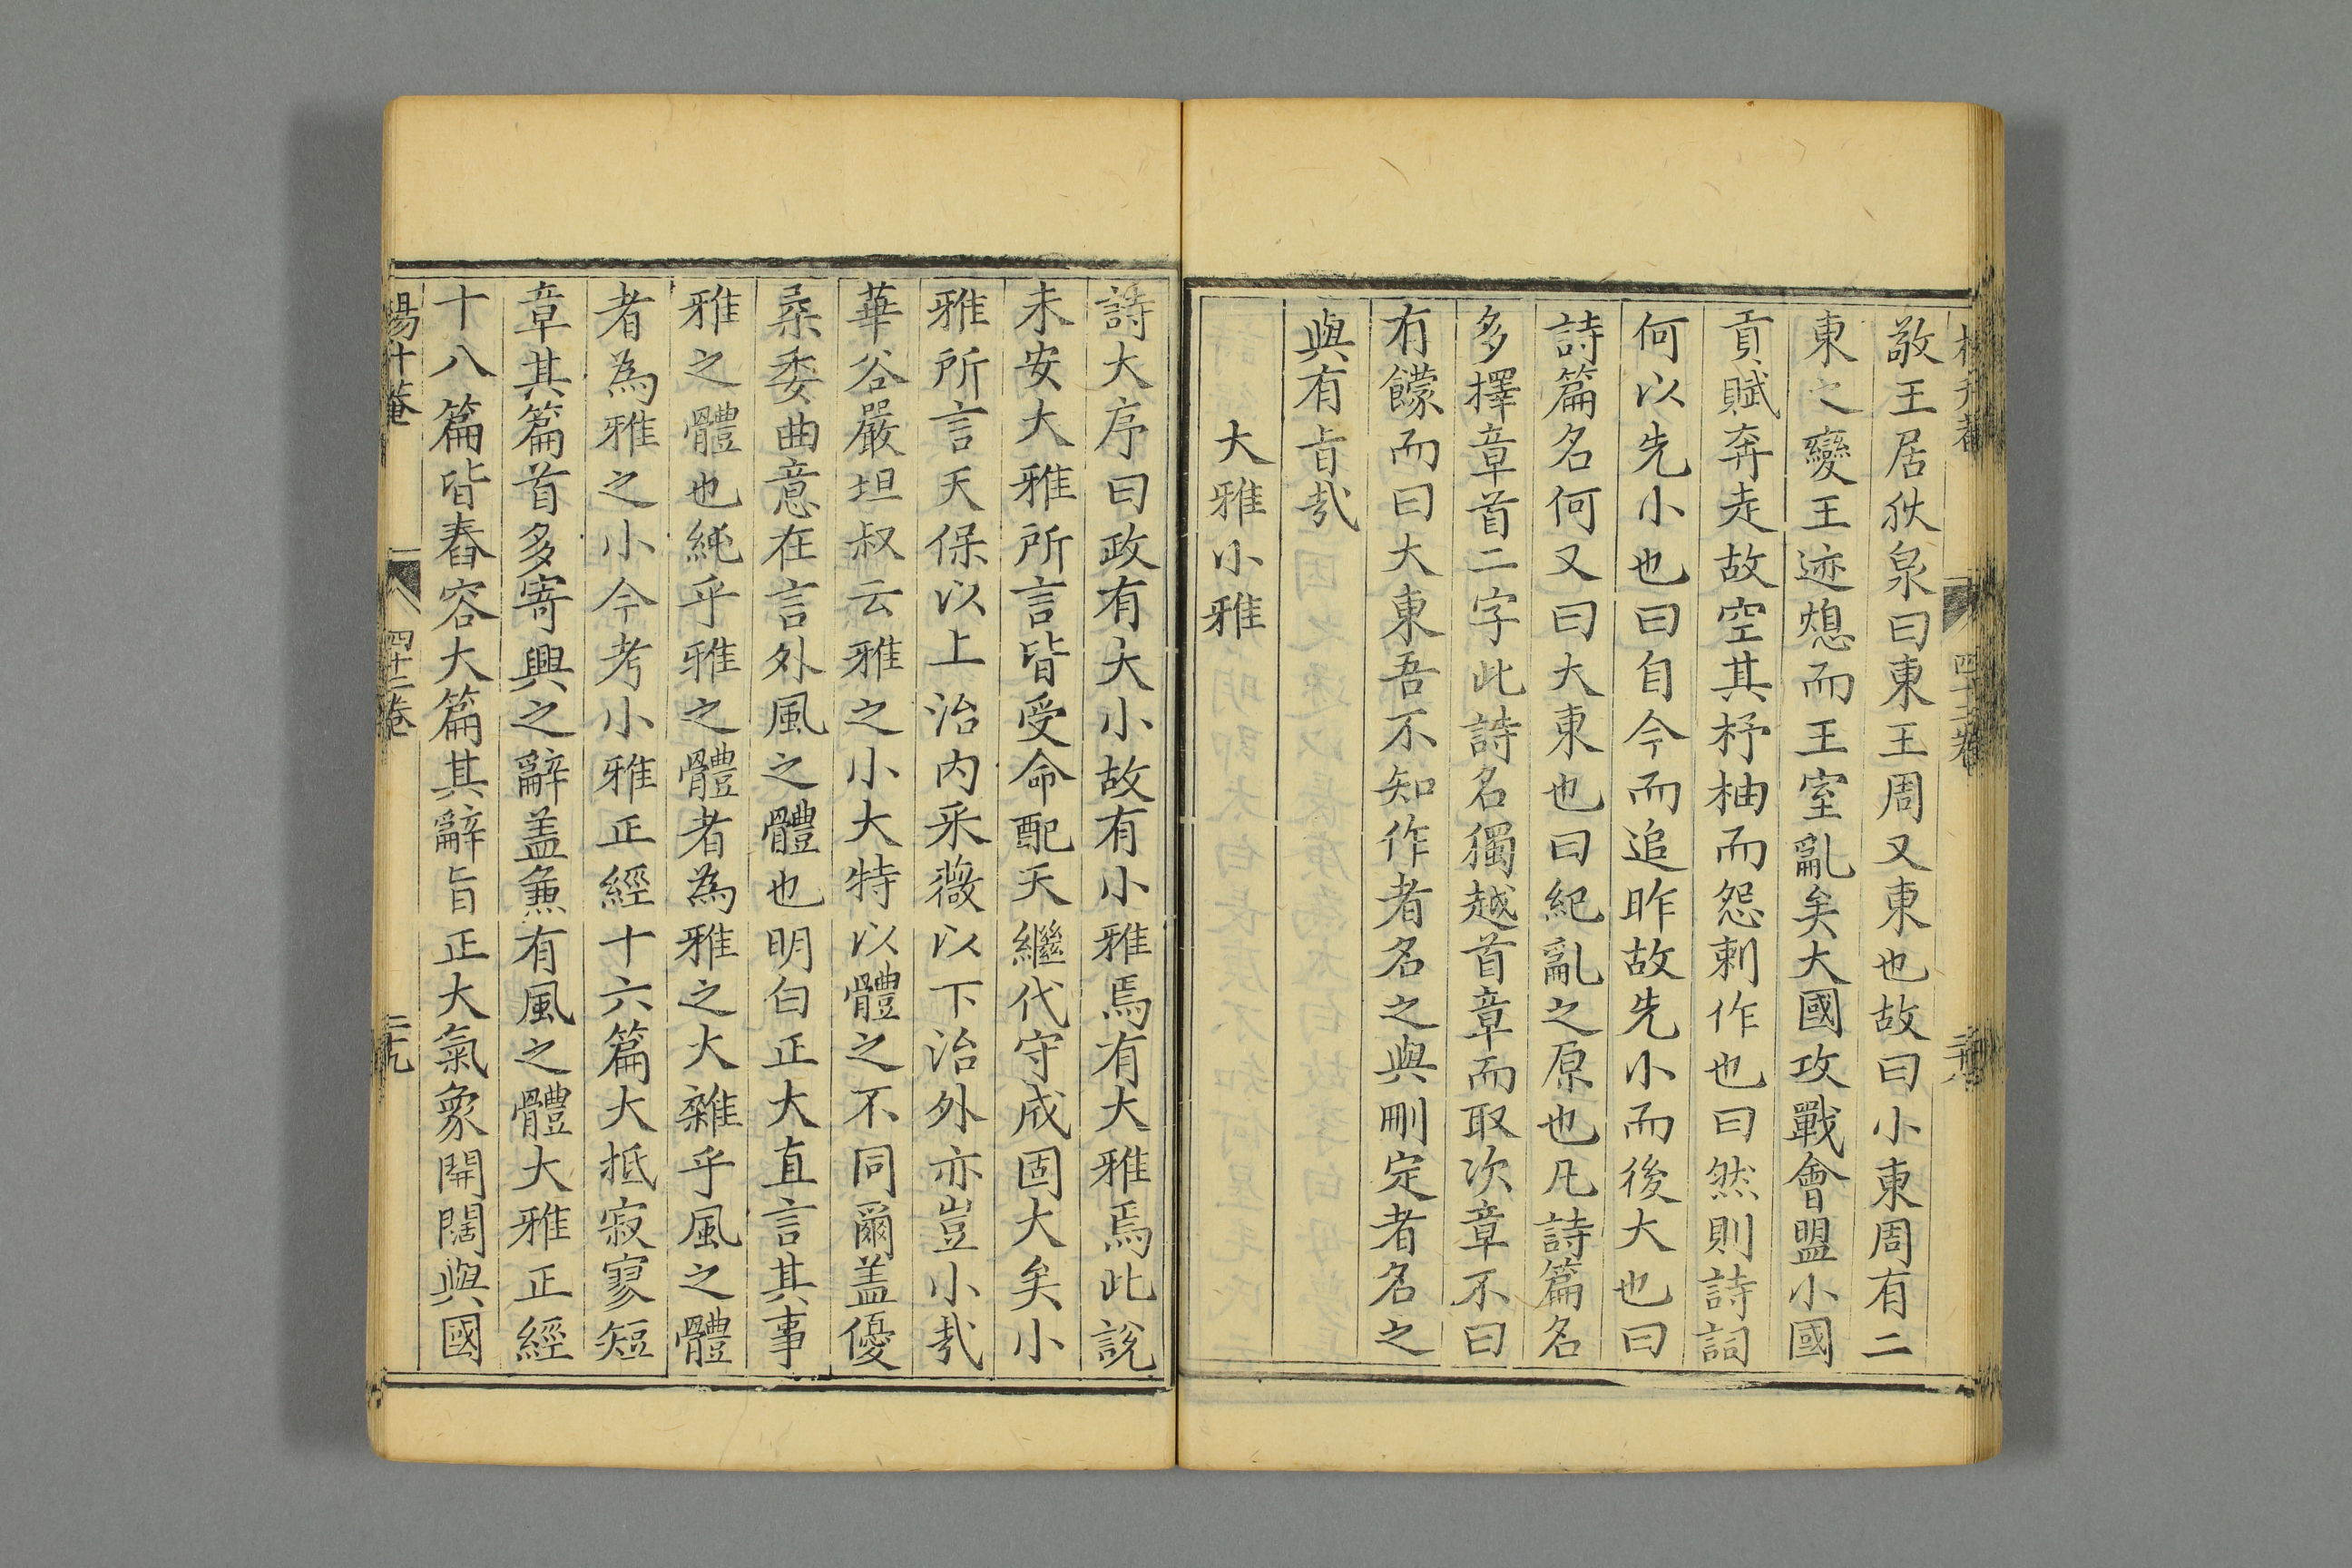 敬王居狄泉曰東王周又東也故曰小東周有二
東之變王迹熄而王室亂矣大國攻戰會盟小國
貢賦奔走故空其杼柚而怨刺作也曰然則詩詞
何以先小也曰自今而追昨故先小而後大也曰
詩篇名何又曰大東也曰紀亂之原也凡詩篇名
多擇章首二字此詩名獨越首章而取次章不曰
有饛而曰大東吾不知作者名之與刪定者名之
與有旨㢤
大雅小雅
詩大序曰政有大小故有小雅焉有大雅焉此說
未安大雅所言皆受命配天繼代守成固大矣小
雅所言天保以上治内采薇以下治外亦豈小㢤
華谷嚴坦叔云雅之小大特以體之不同爾盖優
柔委曲意在言外風之體也明白正大直言其事
雅之體也純乎雅之體者為雅之大雜乎風之體
者為雅之小今考小雅正經十六篇大抵寂寥短
章其篇首多寄興之辭盖兼有風之體大雅正經
十八篇皆舂容大篇其辭旨正大氣象開闊與國
四十二卷